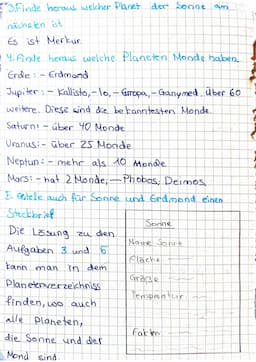 3. Finde heraus welcher Planet der Sonne am
nächsten ist
Es ist Merkur.
4. Finde heraus welche Planeten Monde haben.
Erde: - Erdmond
Jupiter: - Kallisto, - Io, - Europa, - Ganymed, über 60
weitere. Diese sind die bekanntesten Monde.
Saturn: - über 40 Monde
Uranus: - über 25 Monde
Neptun: - mehr als 10 Monde
Mars: - hat 2 Monde, - Phobos, Deimos
5. Estele auch für Sonne und Erdmond einen
Steckbrief
Die Lösung zu den
Aufgaben 3 und 5
kann man in dem
Planetenverzeichniss
finden, wo auch
alle Planeten,
die Sonne und der
Mond sind.
Sonne
Name Sonne
Fläche
Größe
Temprantur
Fakten